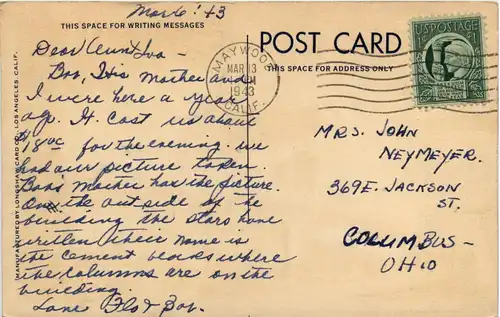 Mar 6. '43
THIS SPACE FOR WRITING MESSAGES
Dear Aunt Iva
Bob, His Mother and
I were here a year
ago. It cost us about
$18.00 for the evening. we
had our picture taken.
Bob's Mother has the picture.
On the out side of the
building the stars have
written their name is
the cement blocks where
the columns are on the
building.
Love Flo & Bob.
MANUFACTURED BY LONGSHAW CARD CO., LOS ANGELES, CALIF.
POST CARD
THIS SPACE FOR ADDRESS ONLY
MAYWOOD
MAR 13
1943
CALIF.
U.S. POSTAGE
1¢
MRS. JOHN
NEYMEYER.
369 E. JACKSON
ST.
COLUMBUS-
OHIO